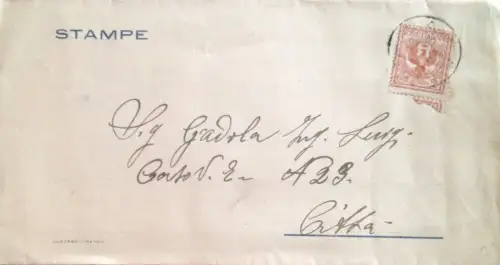 STAMPE
Sig Gadola Ing. Luigi
Corso V. E. - N 23.
Città